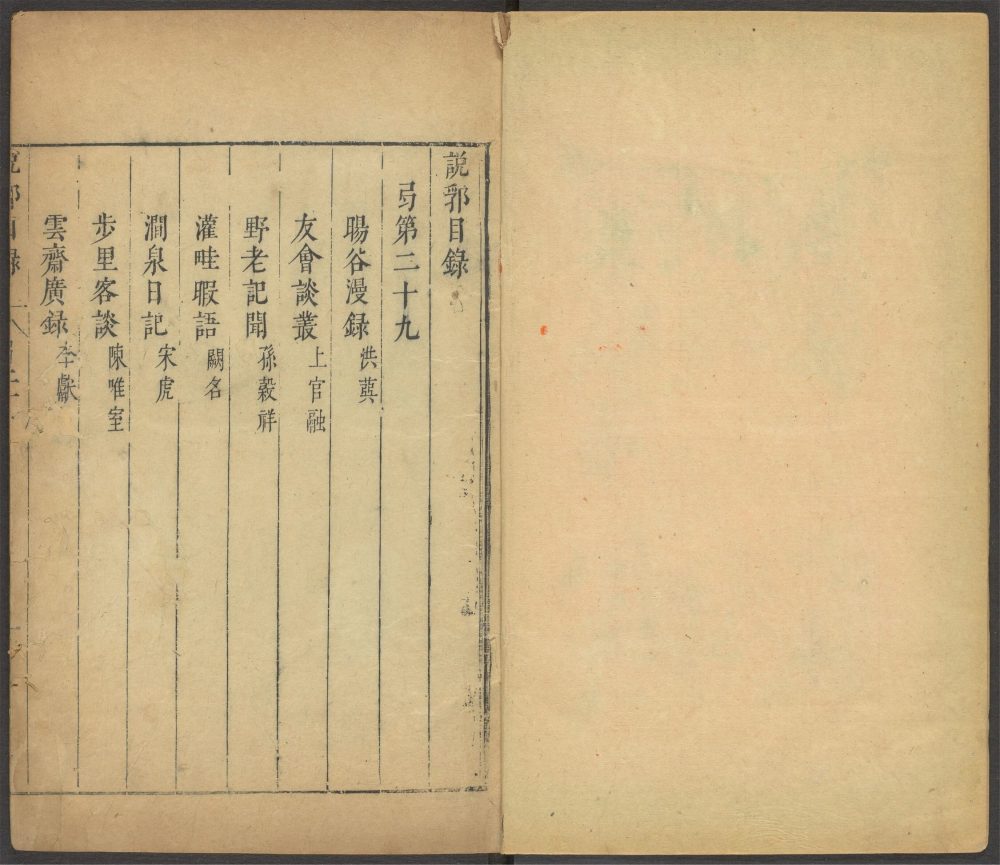 說郛目錄
弓第二十九
暘谷漫錄 洪㢲
友會談叢 上官融
野老記聞 孫穀祥
灌畦暇語 闕名
澗泉日記 宋虎
步里客談 陳唯室
雲齋廣錄 李獻
說郛目錄